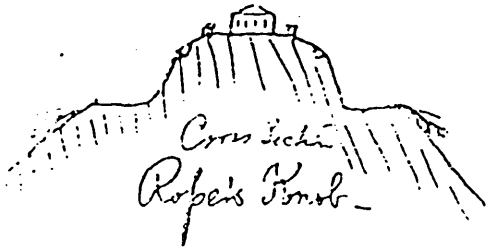 Cross Section
Ropers Knob_